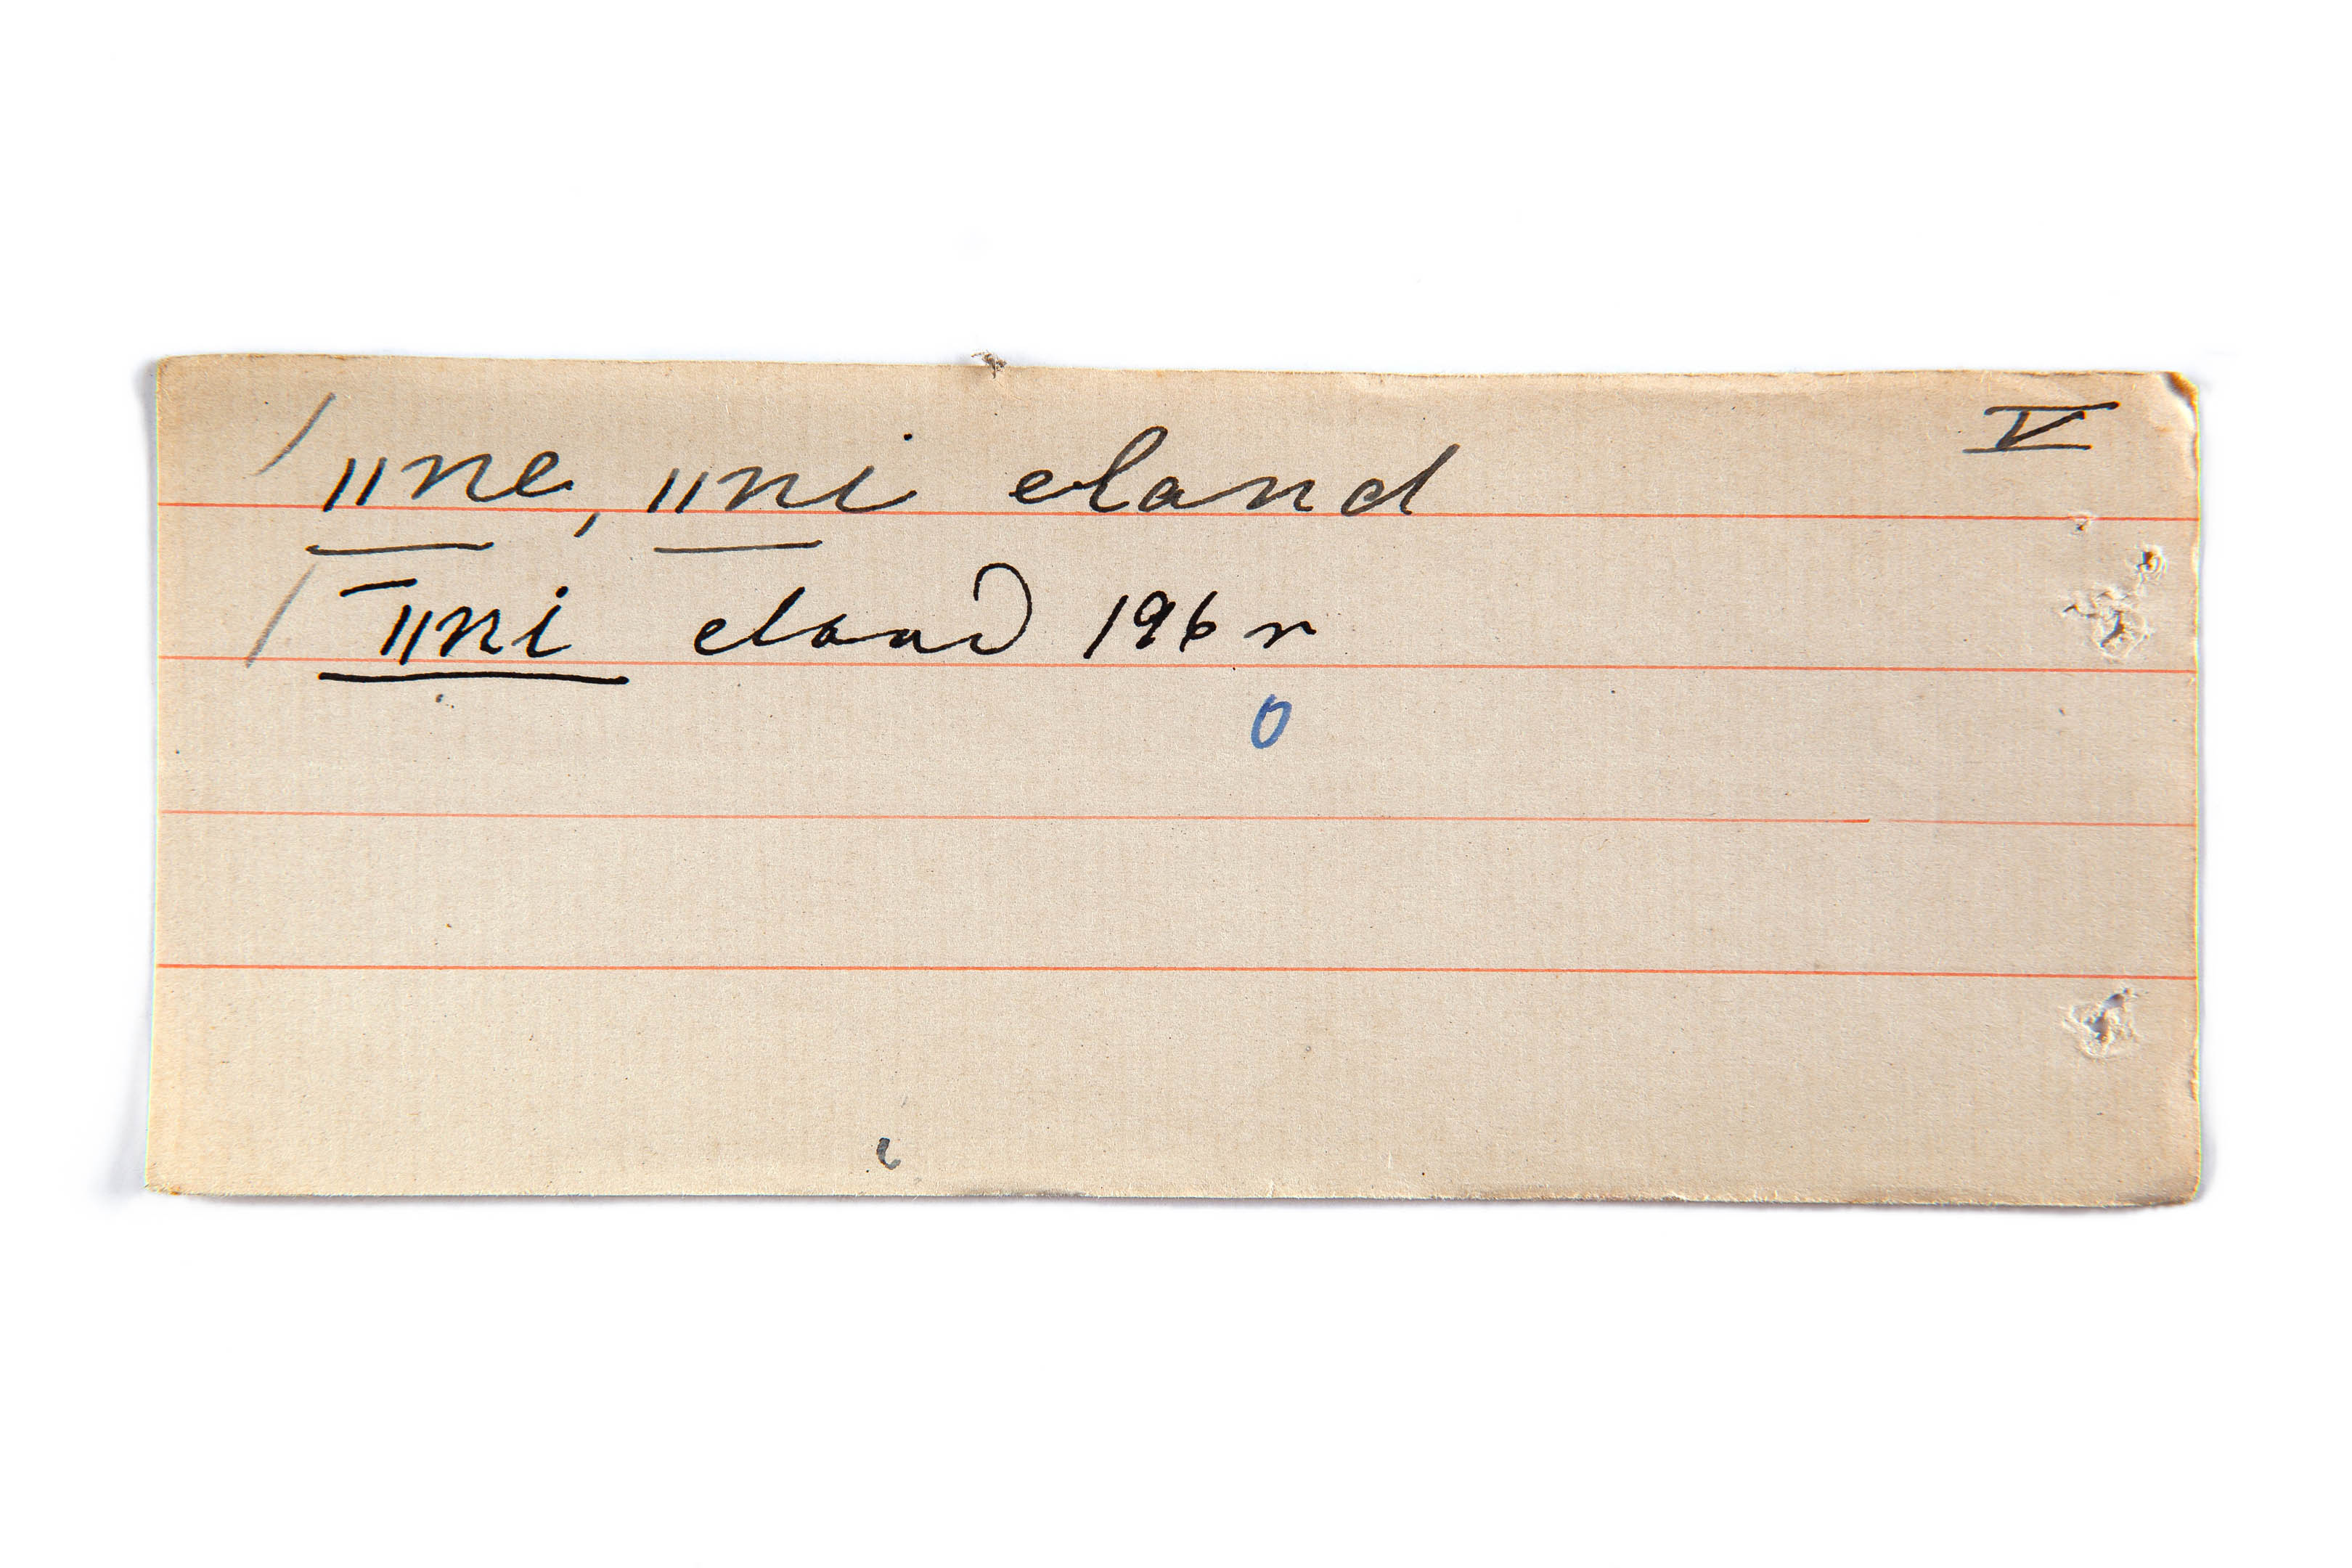 V
ǁne, ǁni eland
‾ǁni eland 196 r
0